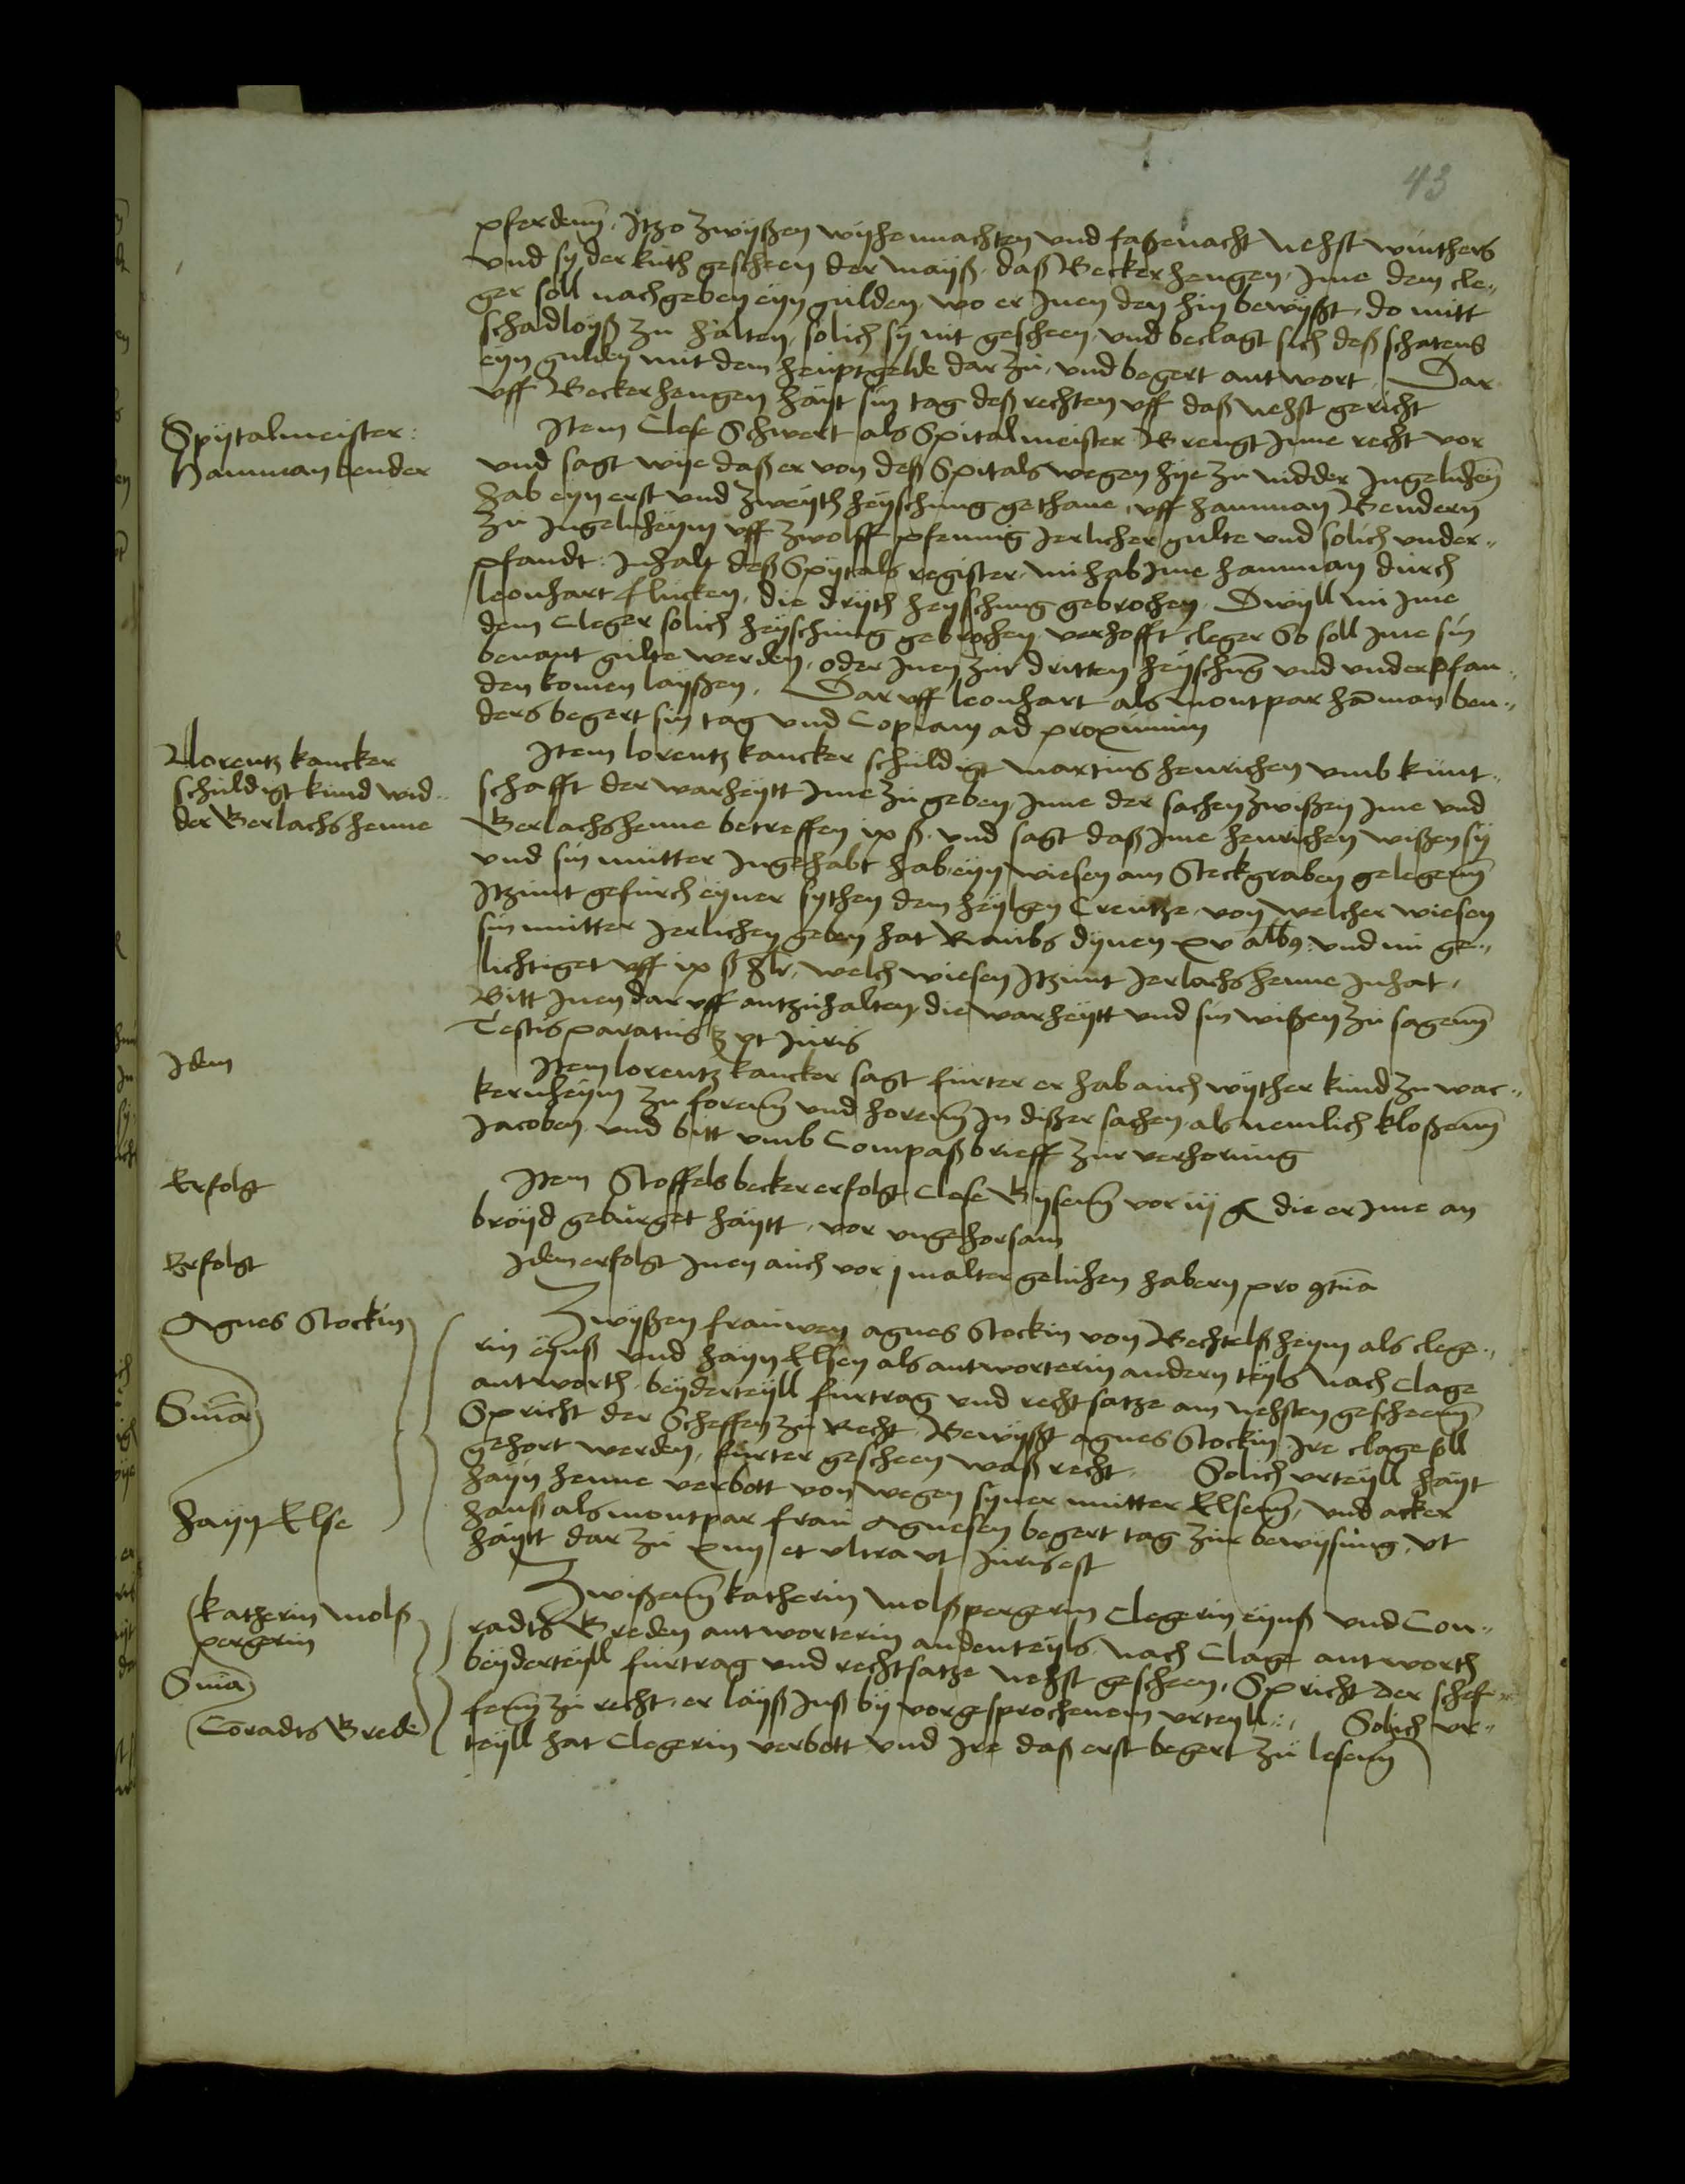 43
pferdenn, Jtzo zwyßen wyhennachten vnd faßenacht nehst winthers
vnd sy der kuth gescheen der mayß, daß Becker hengen, Jme dem cle„
ger soll nachgeben eyn gulden, wo er Jnen den hin bewyßt, do mitt
schadloyß zu halten, solich sy nit gescheen, vnd beclagt sich deß schatens
eyn gulden mit dem heuptgelde dar zu, vnd begert antwort, Dar
vff Becker hengen hayt sin tag deß rechten vff daß nehst gericht
Spytalmeister:
Hamman bender
Jtem Clese Schwert als Spitalmeister Brengt Jnne recht vor
vnd sagt wye daß er von deß Spitals wegen hye zu nidder Jngelnheym
hab eyn erst vnd zweyth heyschung gethane, vff hamman Bendern
zu Jngelnheym vff zwolff pfennig Jerlicher gulte vnd solich vnder„
pfandt: Jnhalt deß Spytals register, nu hab Jme hamman durch
leonhart flucken, die dryth heyschung gebrochen, Dwyll nu Jme
dem Cleger solich heyschung gebrochen verhofft cleger So soll Jme sin
benant gulte werden, oder Jnen zur dritten heyschung vnd vnderpfan„
den komen layßen, Dar vff leonhart als montpar haman ben„
ders begert sin tag vnd Copiam ad proximum
Lorentz kancker
schuldigt kund wid„
der Gerlachs henne
Jtem lorentz kancker schuldigt martins henrichen vmb kunt„
schafft der warheytt Jme zu geben, Jnne der sachen zwißen Jme vnd
Gerlachs henne betreffen ix ß, vnd sagt daß Jme henrichen wißen sy
vnd sin mutter Jngehabt hab, eyn wiesen am Steckgraben gelegenn
Jtzunt gefurch eyner sythen dem heylgen Creutze, von welcher wiesen
sin mutter Jerlichen geben hat dynen xv alb9: vnd nu ge„
lichtiget vff ix ß hlr, welch wiesen Jtzunt Jerlachs henne Jnhat,
Bitt Jnen dar vff antzuhalten, die warheytt vnd sin wißen zu sagenn
Testis paratus vt Juris
Jdem
Jtem lorentz kancker sagt furter er hab auch wyther kund zu wac„
kernheym zu forenn vnd horenn Jn dißer sachen, als nemlich kloßenn
Jacoben, vnd bitt vmb Compaßbrieff zur verhorung
Erfolgt
Jtem Stoffels becker erfolgt Clese Byßenn vor iij die er Jme an
broyd geburget haytt, vor vngehorsam
Erfolgt
Jdem erfolgt Jnen auch vor j malter gelühen habern pro 9tuma
Agnes Stockin
Suia
hayn Else
Zwyßen frauwen agnes Stockin von Bechtelßheym als clege„
rin eynß vnd hayn Elsen als antworterin andern teyls nach Clage
antworth, beyderteyll furtrag vnd rechtsatze am nehsten gescheenn
Spricht der Scheffen zu Recht, Bewyßt agnes Stockin Jre clage soll
gehort werden, furter gescheen waß recht, Solich vrteyll hayt
hayn henne verbott von wegen syner mutter Elsenn, vnd acker
hanß als montpar frau Agnesen begert tag zur bewysung, vt
haytt dar zu xiiij et vltra vt Juris est
Katherin molß
pergerin
Suia
Coradts Brede
Zwißenn katherin molßpergerin Clegerin eynß vnd Con„
radts Breden antworterin andenteyls, nach Clage antworth
beyderteyll furtrag vnd rechtsatze nehst gescheen, Spricht der schef„
fenn zu recht, er layß Jnß by vorgesprochenem vrteyll:, Solich vr„
teyll hat Clegerin verbott vnd Jre daß erst begert zu lesenn